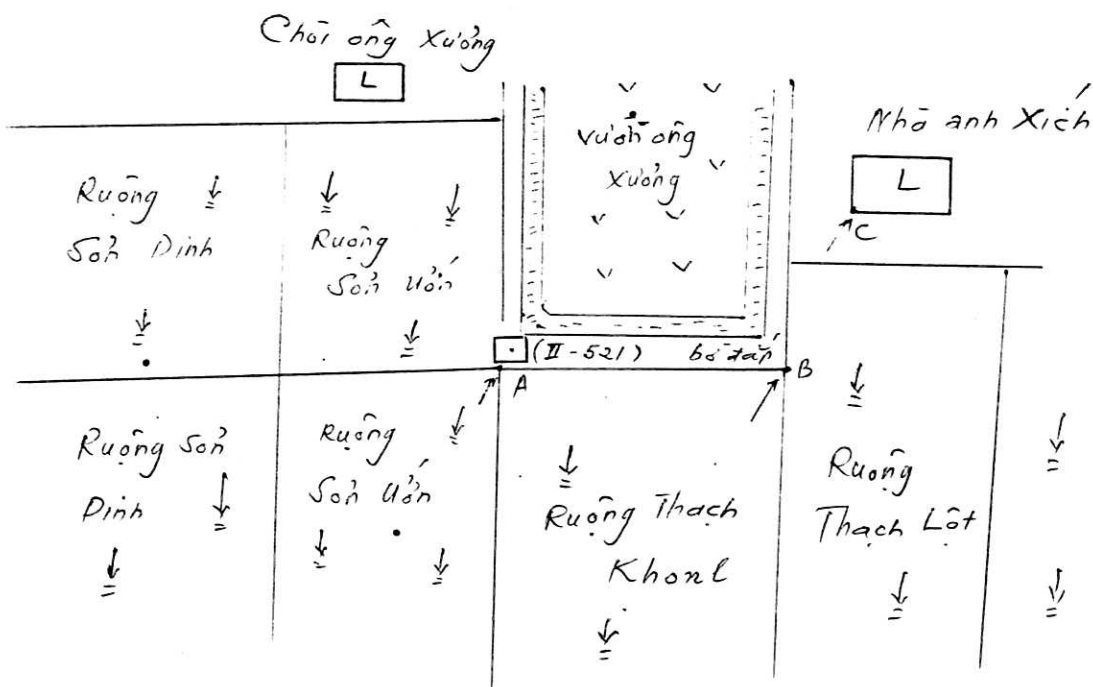 Chòi ông Xưởng
L
Vườn ông
Xưởng
Nhà anh Xích
L
C
Ruộng
Sơn Dinh
Ruộng
Sơn Uốn
(II-521) bờ đắp
A
B
Ruộng Sơn
Dinh
Ruộng
Sơn Uốn
Ruộng Thạch
Khonl
Ruộng
Thạch Lột